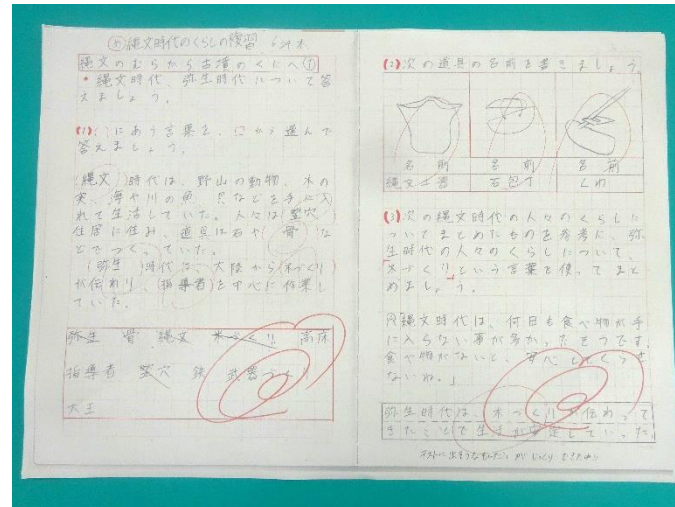 縄文時代のくらしの復習
縄文のむらから古墳のくにへ①
・縄文時代、弥生時代について答
えましょう。
(1)( )にあう言葉を、□から選んで
答えましょう。
(縄文)時代は、野山の動物、木の
実、海や川の魚、貝などを手に入
れて生活していた。人々は(竪穴)
住居に住み、道具は石や(骨)な
どでつくっていた。
(弥生)時代は、大陸から(米づくり)
が伝わり、(指導者)を中心に作業し
ていた。
弥生 骨 縄文 米づくり 高床
指導者 竪穴 鉄 武器
大王
(2)次の道具の名前を書きましょう。
名前 名前 名前
縄文土器 石包丁 くわ
(3)次の縄文時代の人々のくらしに
ついてまとめたものを参考に、弥
生時代の人々のくらしについて、
「米づくり」という言葉を使ってまと
めましょう。
縄文時代は、何日も食べ物が手
に入らない事が多かったそうです。
食べ物がないと、安心してくらせ
ないね。」
弥生時代は、米づくりが伝わって
きたことで生活が安定していった。